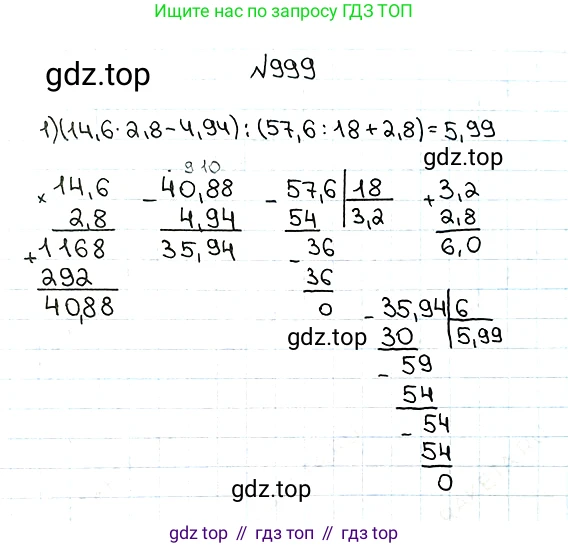 Ищите нас по запросу ГДЗ ТОП
gdz.top
№999
1)(14,6·2,8-4,94):(57,6:18+2,8)=5,99
gdz.top
× 14,6
2,8
+1168
292
40,88
. 9 10
- 40,88
4,94
35,94
- 57,6 | 18
54 | 3,2
- 36
36
0
+ 3,2
2,8
6,0
gdz.top
- 35,94 | 6
30 | 5,99
- 59
54
- 54
54
0
gdz.top
gdz.top // гдз топ // гдз.топ